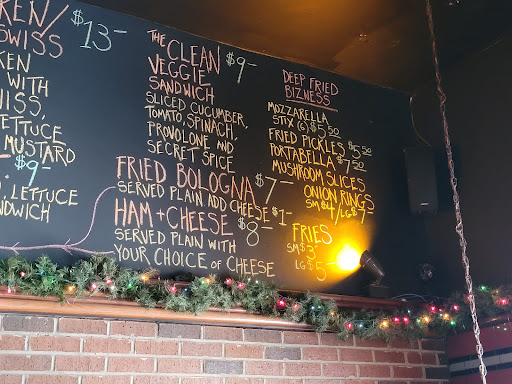 KEN/
SWISS
$13-
KEN
WITH
ISS,
LETTUCE
MUSTARD
$9-
LETTUCE
NDWICH
THE CLEAN $9-
VEGGIE
SANDWICH
SLICED CUCUMBER,
TOMATO, SPINACH,
PROVOLONE AND
SECRET SPICE
FRIED BOLOGNA $7-
SERVED PLAIN ADD CHEESE $1-
HAM + CHEESE $8-
SERVED PLAIN WITH
YOUR CHOICE OF CHEESE
DEEP FRIED
BIZNESS
MOZZARELLA
STIX (6) $5.50
FRIED PICKLES $5.50
PORTABELLA $7.50
MUSHROOM SLICES
ONION RINGS
SM $4/LG $7-
FRIES
SM $3-
LG $5-